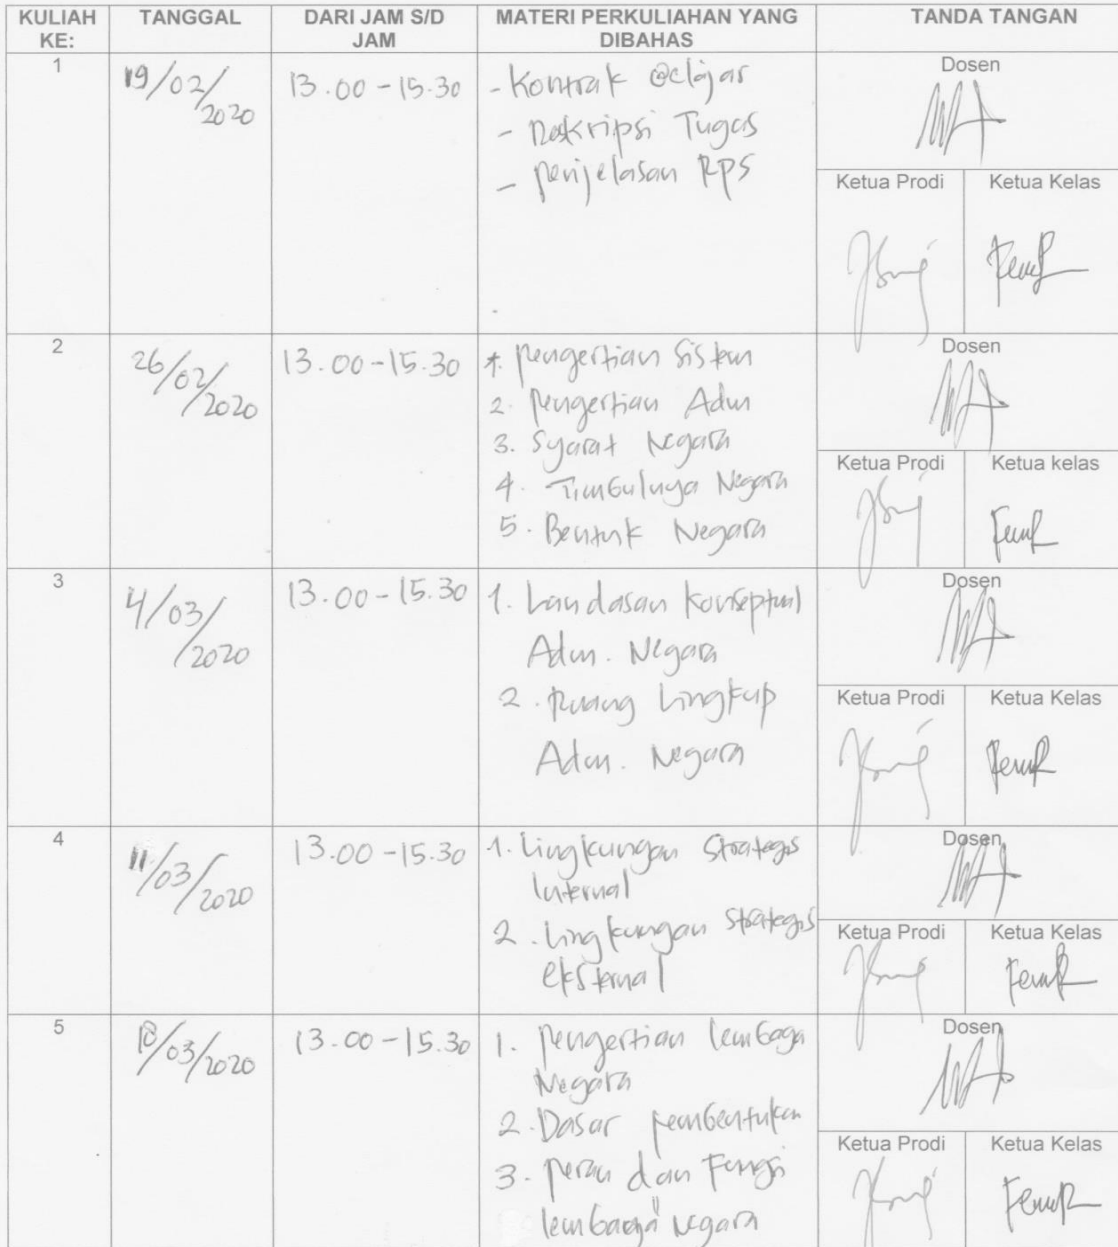 KULIAH KE: TANGGAL DARI JAM S/D JAM MATERI PERKULIAHAN YANG DIBAHAS TANDA TANGAN
1
19/02/2020
13.00 - 15.30
- Kontrak Belajar
- Deskripsi Tugas
- Penjelasan RPS
Dosen
Ketua Prodi Ketua Kelas
2
26/02/2020
13.00 - 15.30
1. Pengertian Sistem
2. Pengertian Adm
3. Syarat Negara
4. Timbulnya Negara
5. Bentuk Negara
Dosen
Ketua Prodi Ketua kelas
3
4/03/2020
13.00 - 15.30
1. Landasan Konseptual
Adm. Negara
2. Ruang Lingkup
Adm. Negara
Dosen
Ketua Prodi Ketua Kelas
4
11/03/2020
13.00 - 15.30
1. Lingkungan Strategis
Internal
2. Lingkungan Strategis
eksternal
Dosen
Ketua Prodi Ketua Kelas
5
18/03/2020
13.00 - 15.30
1. Pengertian lembaga
Negara
2. Dasar pembentukan
3. Peran dan Fungsi
lembaga negara
Dosen
Ketua Prodi Ketua Kelas